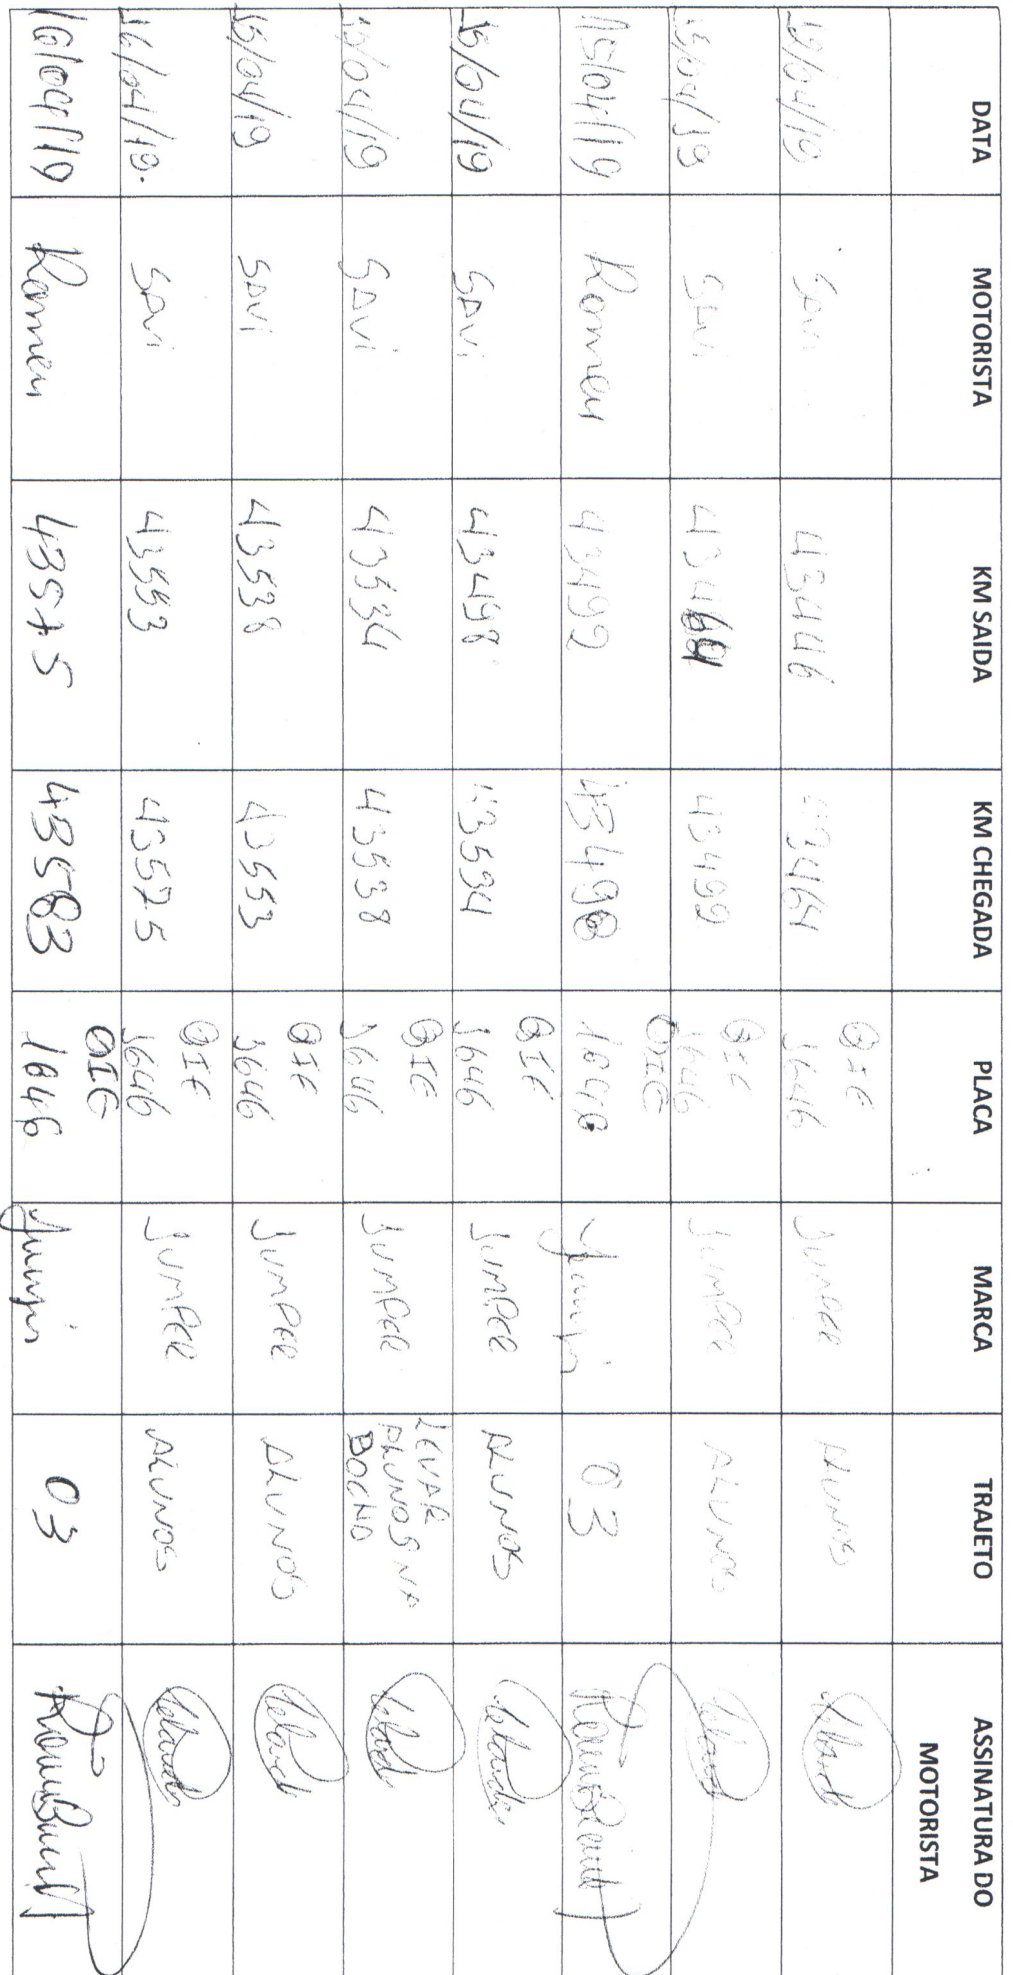 DATA MOTORISTA KM SAIDA KM CHEGADA PLACA MARCA TRAJETO ASSINATURA DO MOTORISTA
/04/19 Savi 43446 43464 QIE 3646 JUMPER ALUNOS
/04/19 Savi 43464 43492 QIE 3646 JUMPER ALUNOS
15/04/19 Romeu 43492 43498 QIE 1646 03
15/04/19 SAVi 43498 43534 QIE 3646 JUMPER ALUNOS
15/04/19 SAVi 43534 43538 QIE 3646 JUMPER LEVAR ALUNOS NA BOCHA
15/04/19 SAVi 43538 43553 QIE 3646 JUMPER ALUNOS
16/04/19. SAVi 43553 43575 QIE 3646 JUMPER ALUNOS
16/04/19 Romeu 43575 43583 QIE 1646 03